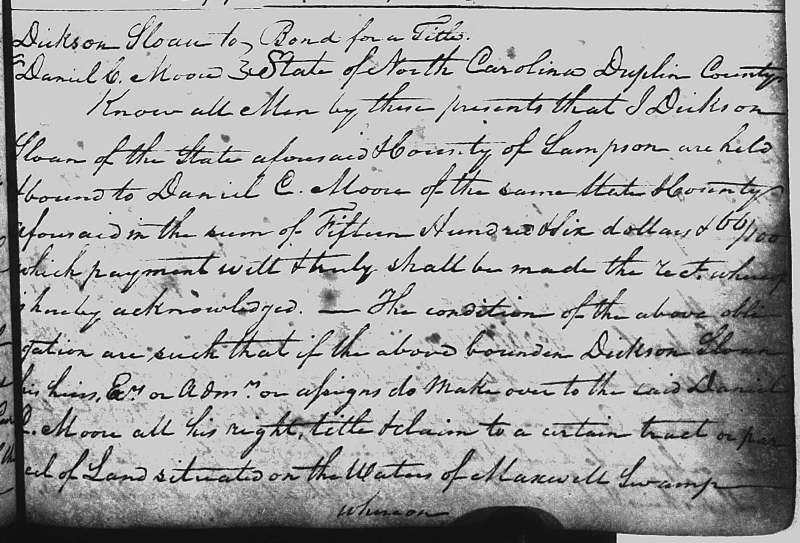 Dickson Sloan to Bond for a Title.
Daniel C. Moore } State of North Carolina Duplin County
Know all Men by these presents that I Dickson
Sloan of the State aforesaid & County of Sampson are held
& bound to Daniel C. Moore of the same State & County
aforesaid in the sum of Fifteen Hundred & Six dollars & 60/100
which payment well & truly shall be made the rect. whereof
is hereby acknowledged. — The condition of the above obli
gation are such that if the above bounden Dickson Sloan
his heirs, Exrs or Admrs. or assigns do Make over to the said Daniel
C. Moore all his right, title & claim to a certain tract or par
cel of Land situated on the Waters of Maxwell Swamp
whereon